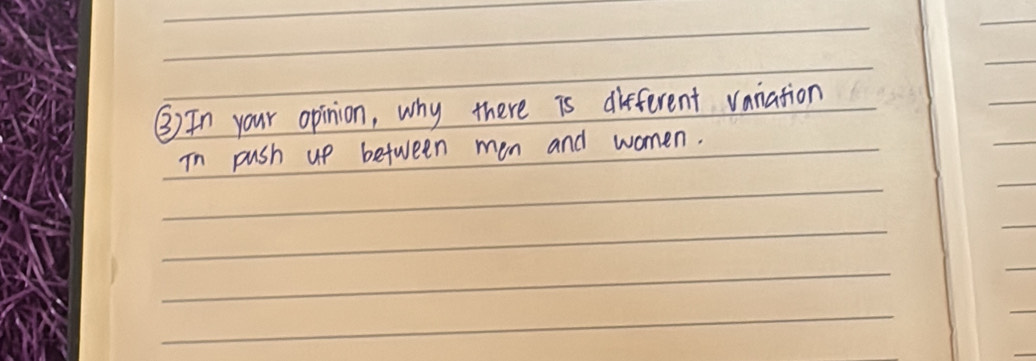 ③ In your opinion, why there is different variation
in push up between men and women.